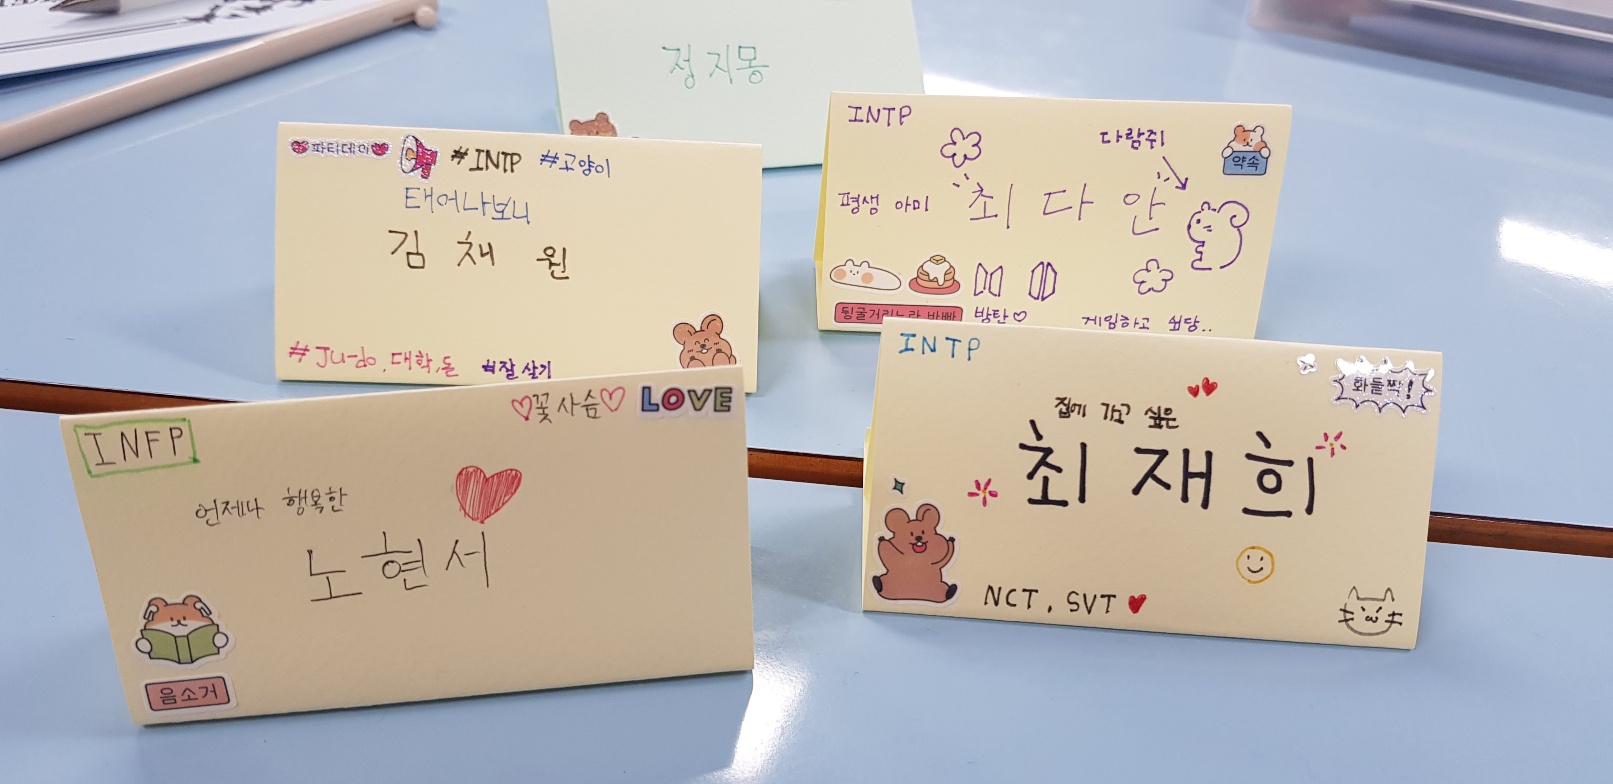 정지몽
파티데이 #INTP #고양이
태어나보니
김채원
#Ju-do, 대학, 돈 #잘살기
INTP
다람쥐
약속
평생 아미 최다안
뒹굴거리느라 바빠 방탄♡
게임하고 싶당..
INFP
♡꽃사슴♡ LOVE
언제나 행복한
노현서
음소거
INTP
화들짝!
집에 가고 싶은
최재희
NCT, SVT